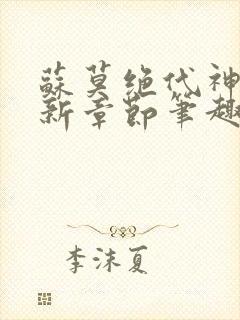 蘇莫绝代神
新章節筆趣
李沫夏